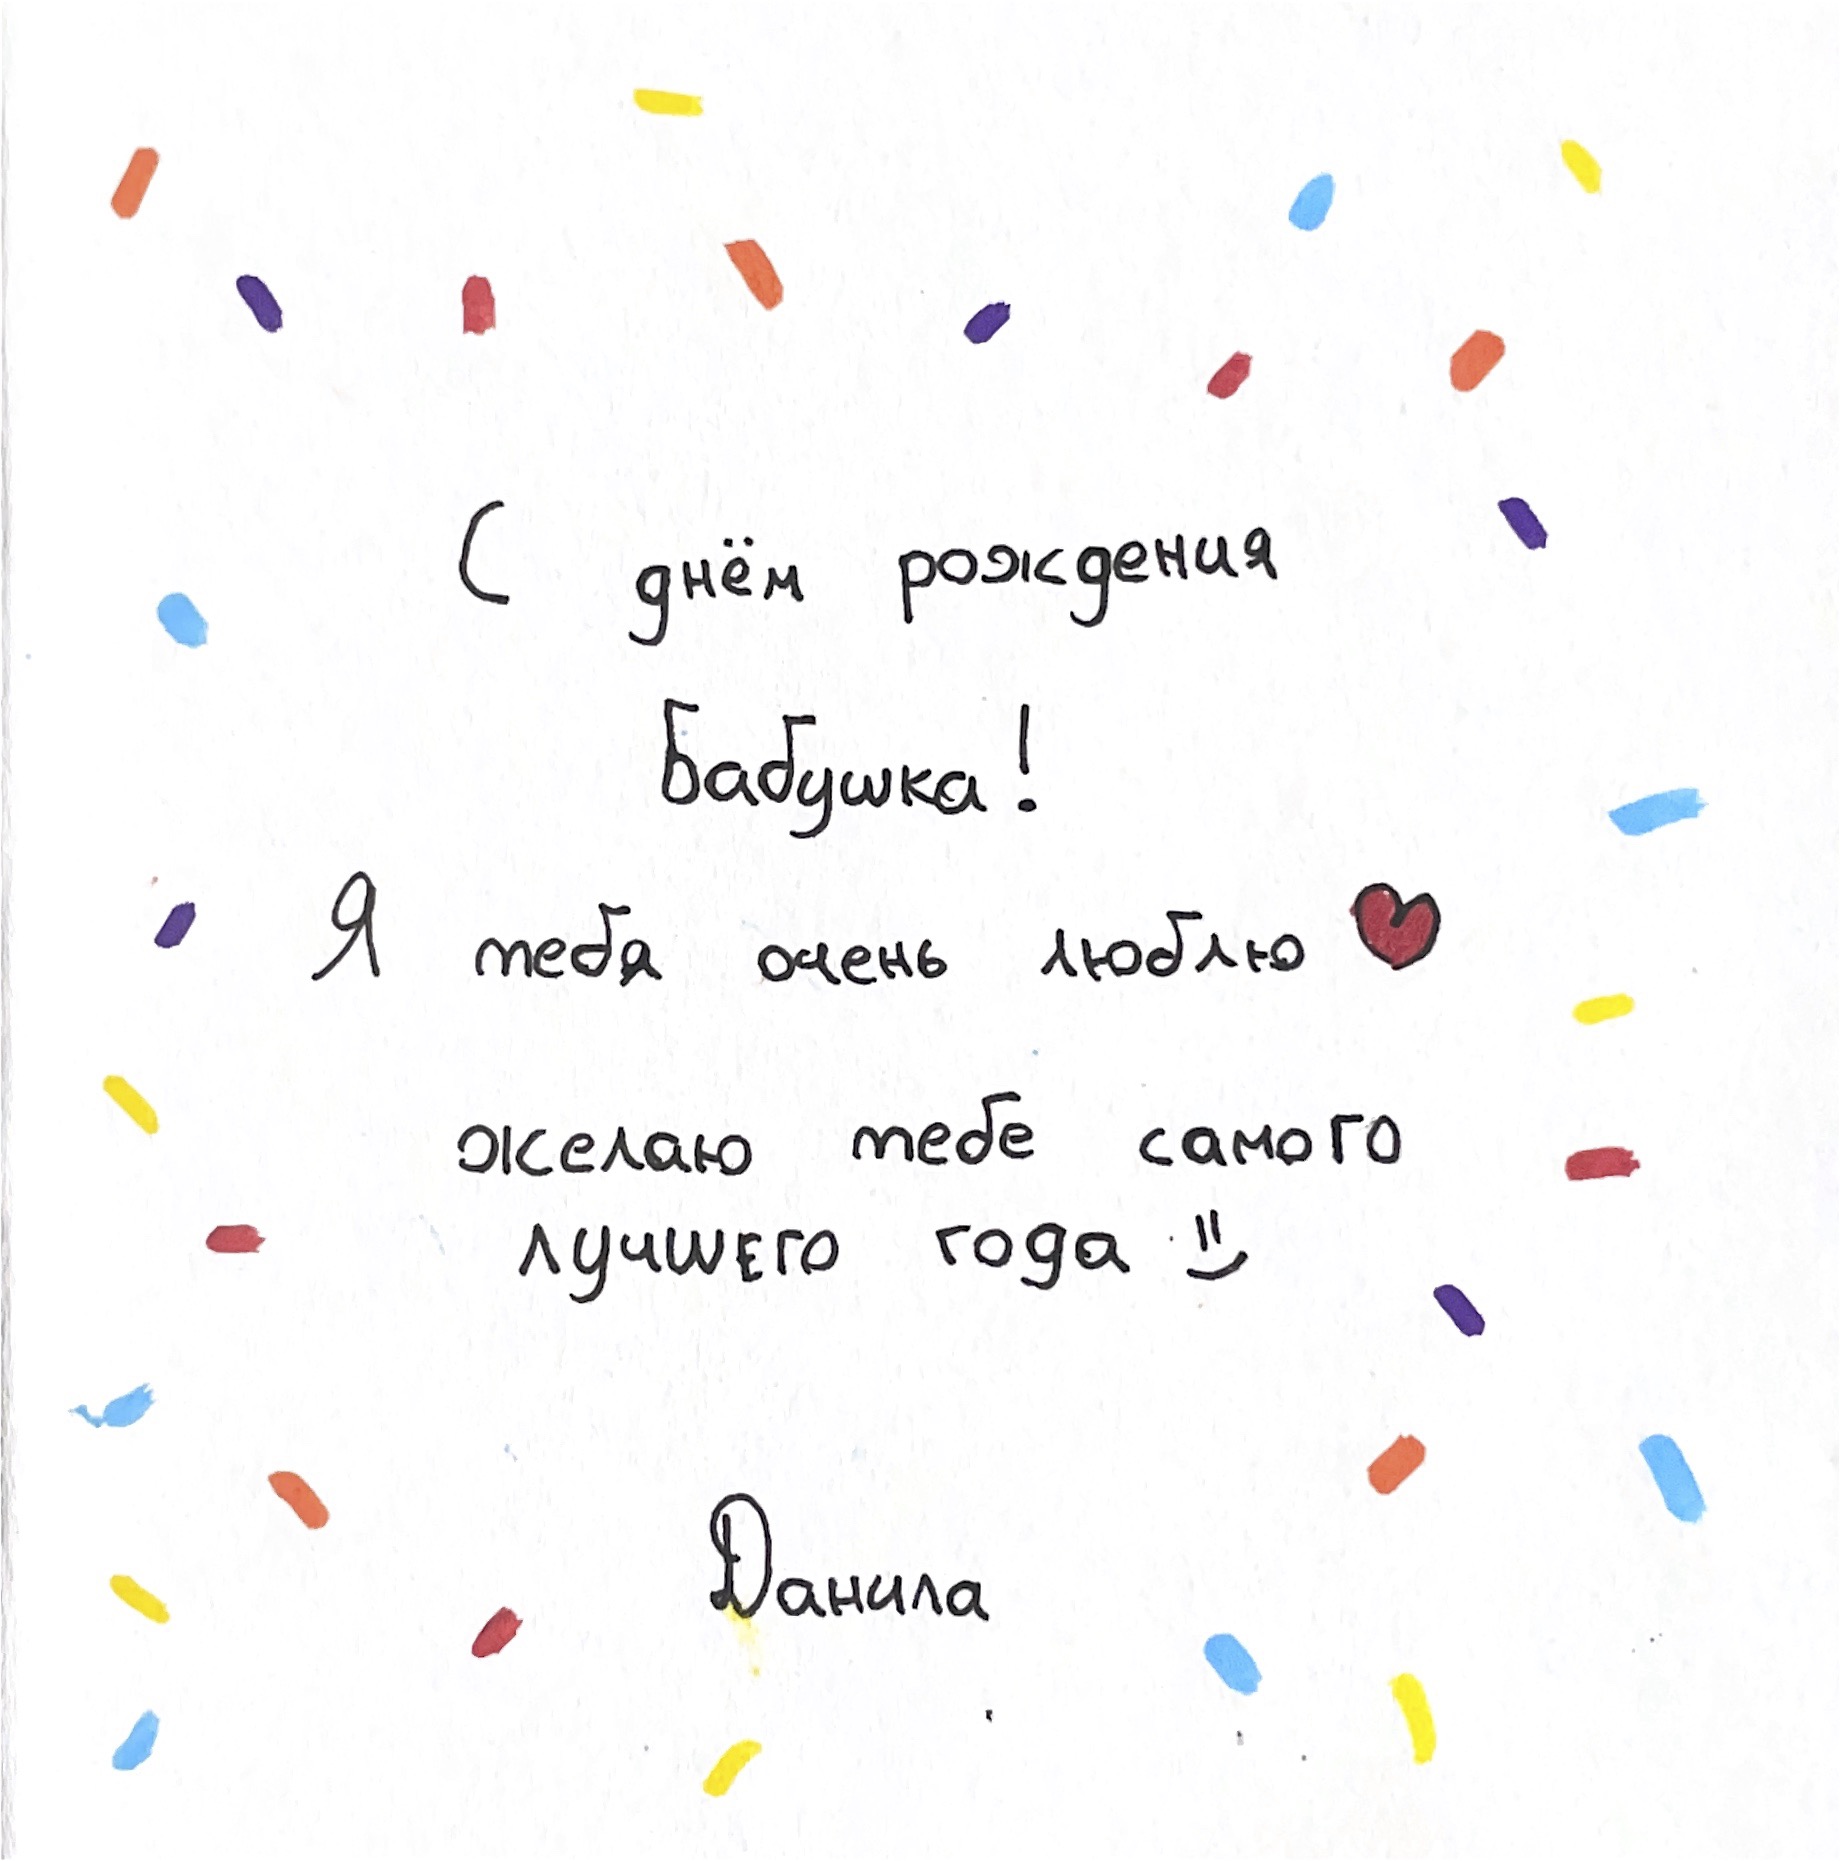 С днём рождения
Бабушка!
Я тебя очень люблю
желаю тебе самого
лучшего года
Данила